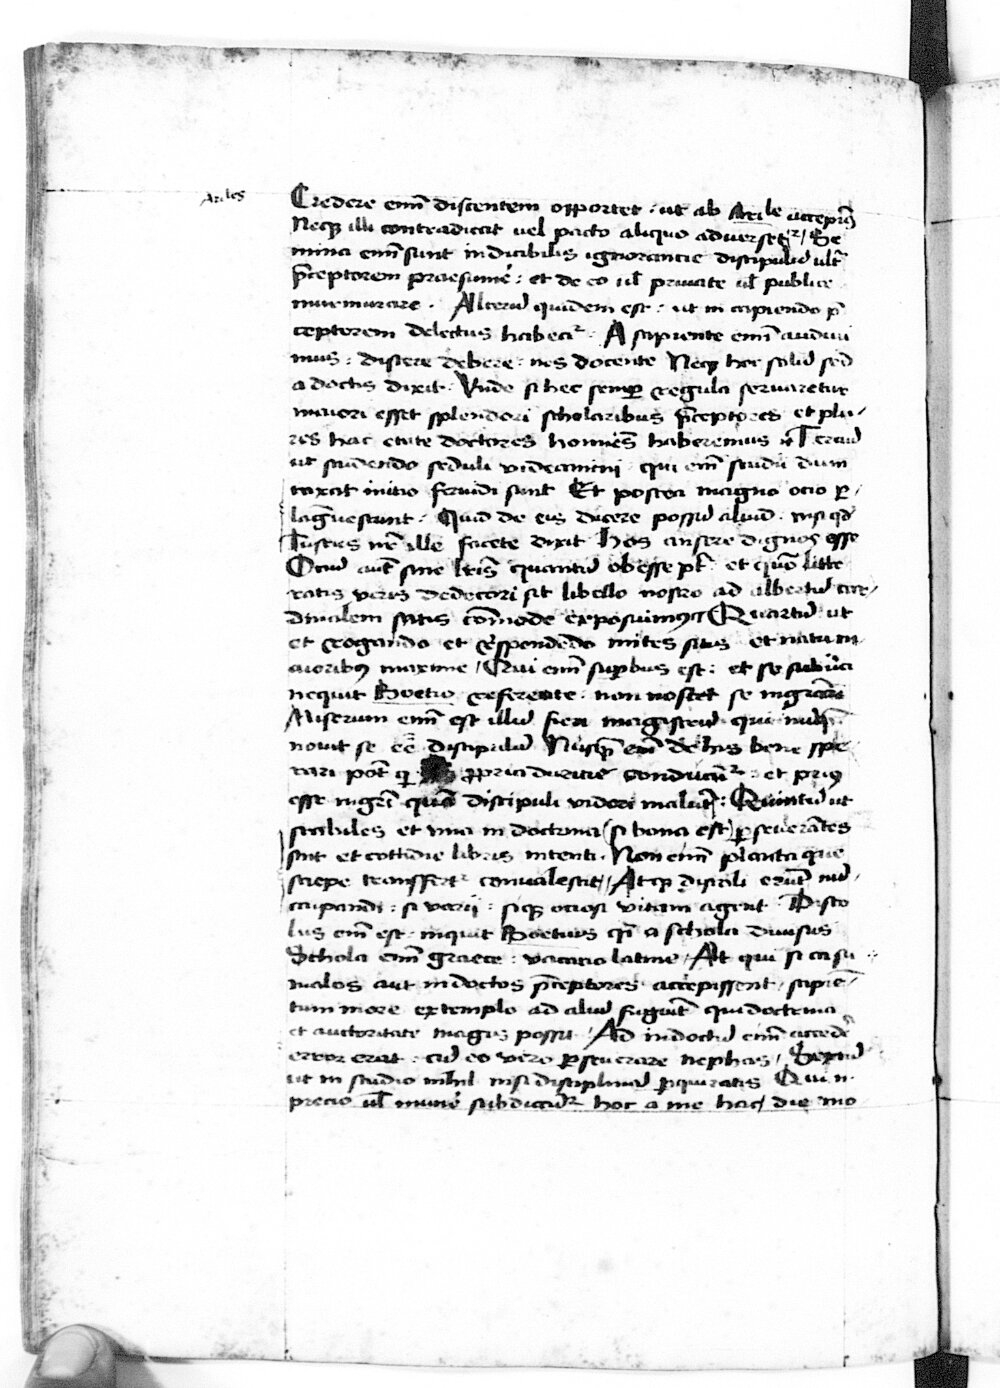 Ariles
Credere enim̄ discentem opportet : ut ab Arile accepim9
Neq3 illi contradicat vel pacto aliquo adverset2 / Se
mina enim̄ sunt indicibilis ignorancie discipulū ult̄
p̄ceptorem praesumē : et de eo ul̄ privute ul̄ publice
murmurare . Alterū quidem est : ut in capiendo p̄
ceptorem delectus habeat2 . A sapiente enim̄ audivi
mus : discere debere : nos docente Neq3 hoc solū sed
a doctis dixit . Unde si hec semp regula servaretur
maiori esset splendori scholaribus p̄ceptores et plu/
res hac etate doctores homnēs haberemus Terciū
ut studendo seduli videamini qui enim̄ studii dum
taxat initio fervidi sunt Et postea magno ocio p/
lagnescunt . Quid de eis dicere possū aliud . nisi qd̄
Iustus nē ille facete dixit hos ansere dignos esse
Ociū aut̄ sine lr̄is quantū obesse pt̄ et quō litte
ratis viris dedecori sit libello nostro ad albertū car/
dinalem satis com̄ode exposuimus Quartū ut
et rogando et respondēdo mites sitis et natu m
aioribus maxime / Qui enim̄ supbus est : et se subiici
nequit Boetio referente : non noscet se mgrari
Miserum enim̄ est illū fieri magistrū qui nūq3
novit se ee discipulū Nusq̄ enim̄ de his bene spe
rari pot̄ qi pp̄ria duricie conducūt2 : et prius
esse mgr̄i quā discipuli videri malūt : Quintū ut
stabiles et una in doctrina (si bona est) pseverātes
sint et cottidie libris intenti . Non enim̄ planta que
saepe transfert2 convalescit // Atq3 discoli erūt nū/
cupandi : si varii : siq3 ociosi vitam agent Disco
lus enim̄ est . inquit Boetius qi a schola divisus
Schola enim̄ graece : vacatio latine / At qui si casu
malos aut indoctos p̄ceptores accepissent / sapiē/
tum more extemplo ad aliū fugiūt qui doctrina
et auctoritate magis possit / Ad indoctū enim̄ accede
error erat : cū eo vero pseverare nephas / Sextū
ut in studio nihil nisi disciplinā pquiratis Qui n.
precio ul̄ munē subdicit2 hoc a me hac / die mo